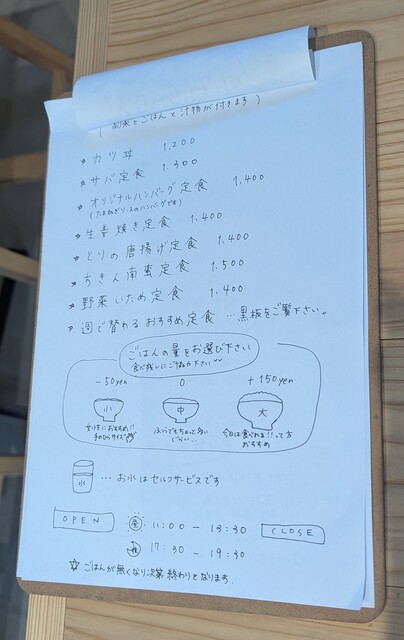 (副菜とごはんと汁物が付きます)
* カツ丼 1.200
* サバ定食 1.300
* オリジナルハンバーグ定食 1.400
(たまねぎソースのハンバーグです)
* 生姜焼き定食 1.400
* とりの唐揚げ定食 1.400
* ちきん南蛮定食 1.500
* 野菜いため定食 1.400
* 週で替わるおすすめ定食 …黒板をご覧下さい。
ごはんの量をお選び下さい
食べ残しにご協力下さい
-50yen 0 +150yen
小 中 大
女性におすすめ!! ふつうでもちょっと多い 今日は食べれる!!って方
手のひらサイズ ぐらい… おすすめ
水 … お水はセルフサービスです
OPEN 昼 11:00 - 13:30 CLOSE
夜 17:30 - 19:30
☆ ごはんが無くなり次第終わりとなります.